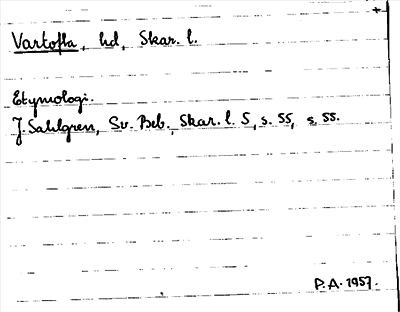 Vartofta, hd, Skar. l.
Etymologi.
J. Sahlgren, Sv. Beb., Skar. l. 5, s. 55, s. 55.
P.A. 1957.